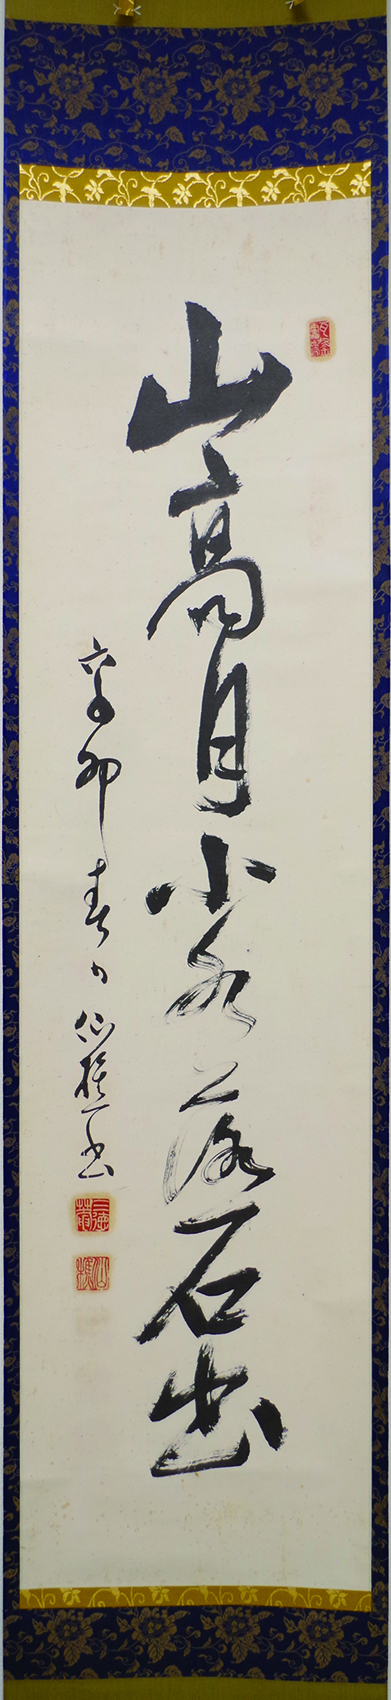 山高月小水落石出
辛卯春日仙樵書